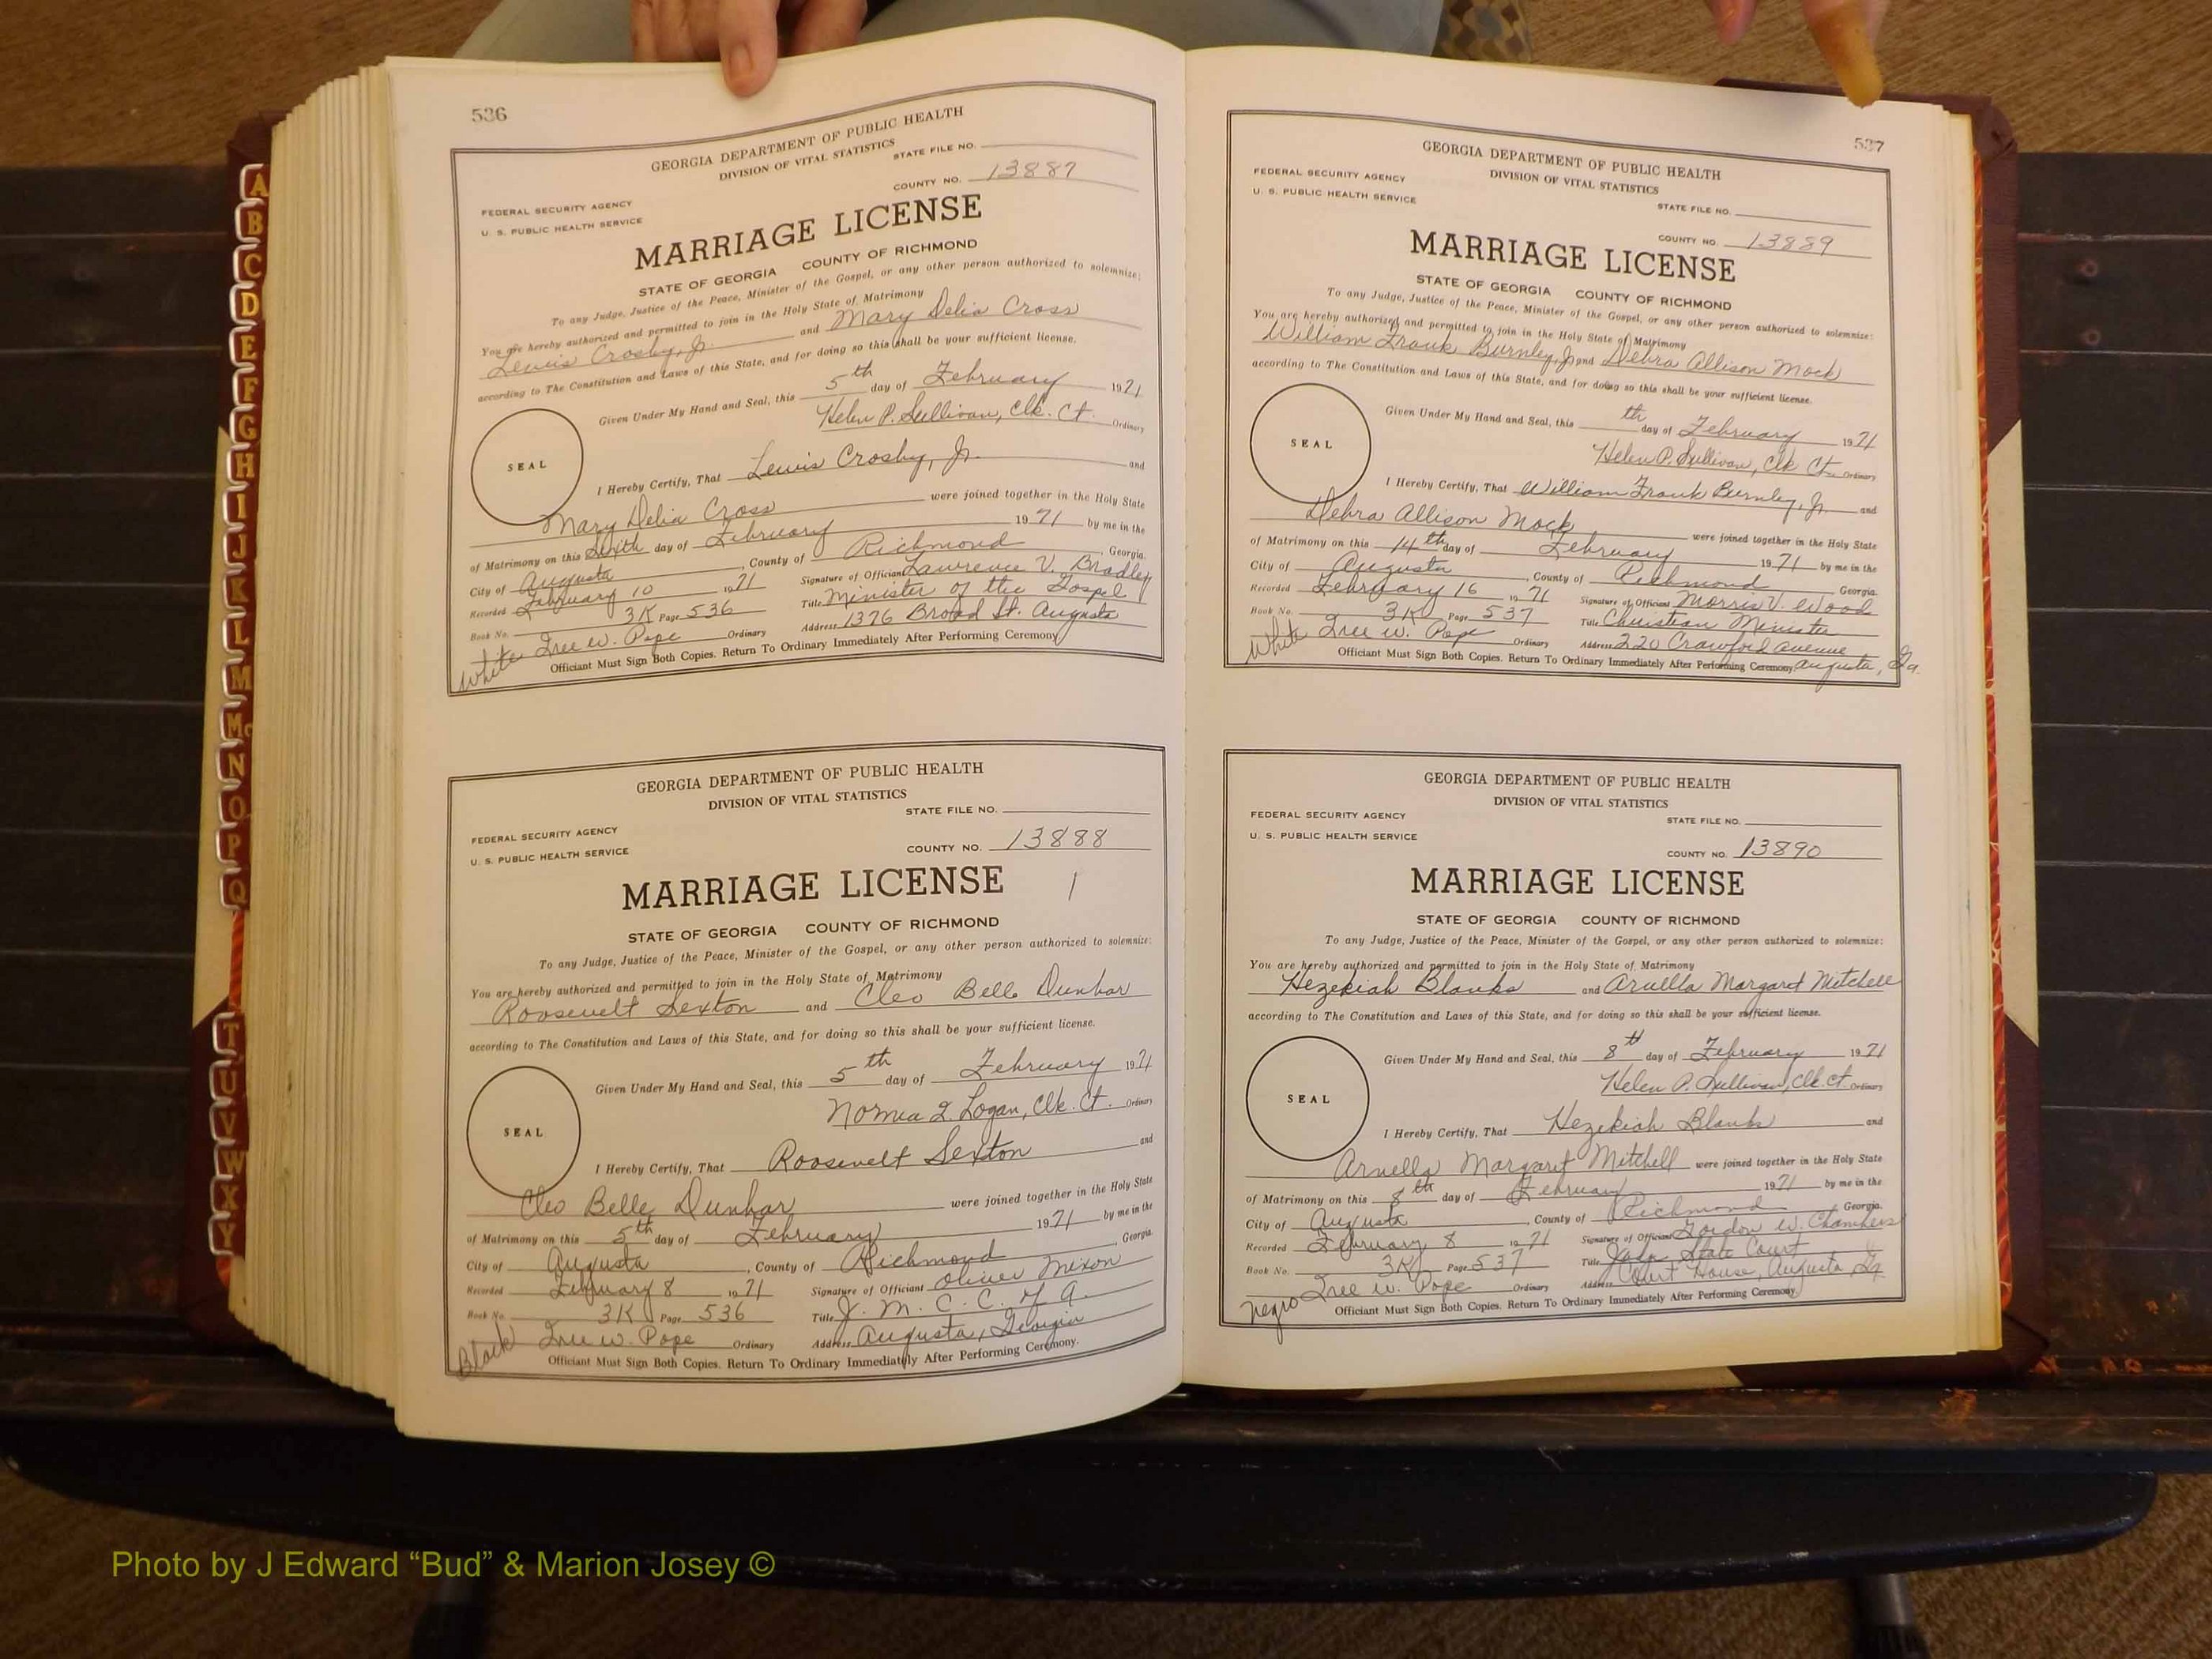 536
GEORGIA DEPARTMENT OF PUBLIC HEALTH
DIVISION OF VITAL STATISTICS
STATE FILE NO.
COUNTY NO. 13887
FEDERAL SECURITY AGENCY
U. S. PUBLIC HEALTH SERVICE
MARRIAGE LICENSE
STATE OF GEORGIA COUNTY OF RICHMOND
To any Judge, Justice of the Peace, Minister of the Gospel, or any other person authorized to solemnize:
You are hereby authorized and permitted to join in the Holy State of Matrimony
Lewis Crosby, Jr. and Mary Delia Cross
according to The Constitution and Laws of this State, and for doing so this shall be your sufficient license.
Given Under My Hand and Seal, this 5th day of February 1971
Helen P. Sullivan, Clk. Ct. Ordinary
SEAL
I Hereby Certify, That Lewis Crosby, Jr. and
Mary Delia Cross were joined together in the Holy State
of Matrimony on this Sixth day of February 1971 by me in the
City of Augusta, County of Richmond, Georgia.
Recorded February 10 1971 Signature of Official Lawrence V. Bradley
Book No. 3K Page 536 Title Minister of the Gospel
Inee W. Pope Ordinary Address 1376 Broad St. Augusta
White Officiant Must Sign Both Copies. Return To Ordinary Immediately After Performing Ceremony
GEORGIA DEPARTMENT OF PUBLIC HEALTH
DIVISION OF VITAL STATISTICS
STATE FILE NO.
FEDERAL SECURITY AGENCY
U. S. PUBLIC HEALTH SERVICE
COUNTY NO. 13888
MARRIAGE LICENSE
STATE OF GEORGIA COUNTY OF RICHMOND
To any Judge, Justice of the Peace, Minister of the Gospel, or any other person authorized to solemnize:
You are hereby authorized and permitted to join in the Holy State of Matrimony
Roosevelt Sexton and Cleo Belle Dunbar
according to The Constitution and Laws of this State, and for doing so this shall be your sufficient license.
Given Under My Hand and Seal, this 5th day of February 1971
Logan, Clk. Ct. Ordinary
SEAL
I Hereby Certify, That Roosevelt Sexton and
Cleo Belle Dunbar were joined together in the Holy State
of Matrimony on this 5th day of February 1971 by me in the
City of Augusta, County of Richmond, Georgia.
Recorded February 8 1971 Signature of Officiant Oliver Mixon
Book No. 3K Page 536 Title J. M. C. C. of A.
Inee W. Pope Ordinary Address Augusta, Georgia
Black Officiant Must Sign Both Copies. Return To Ordinary Immediately After Performing Ceremony.
537
GEORGIA DEPARTMENT OF PUBLIC HEALTH
DIVISION OF VITAL STATISTICS
FEDERAL SECURITY AGENCY
U. S. PUBLIC HEALTH SERVICE
STATE FILE NO.
COUNTY NO. 13889
MARRIAGE LICENSE
STATE OF GEORGIA COUNTY OF RICHMOND
To any Judge, Justice of the Peace, Minister of the Gospel, or any other person authorized to solemnize:
You are hereby authorized and permitted to join in the Holy State of Matrimony
William Frank Burnley, Jr. and Debra Allison Mock
according to The Constitution and Laws of this State, and for doing so this shall be your sufficient license.
Given Under My Hand and Seal, this th day of February 1971
Helen P. Sullivan, Clk Ct. Ordinary
SEAL
I Hereby Certify, That William Frank Burnley, Jr and
Debra Allison Mock, were joined together in the Holy State
of Matrimony on this 14th day of February 1971 by me in the
City of Augusta, County of Richmond Georgia.
Recorded February 16 1971 Signature of Officiant Morris V. Wood
Book No. 3K Page 537 Title Christian Minister
Inee W. Pope Ordinary Address 220 Crawford Avenue
White Officiant Must Sign Both Copies. Return To Ordinary Immediately After Performing Ceremony Augusta, Ga.
GEORGIA DEPARTMENT OF PUBLIC HEALTH
DIVISION OF VITAL STATISTICS
FEDERAL SECURITY AGENCY
STATE FILE NO.
U. S. PUBLIC HEALTH SERVICE
COUNTY NO. 13890
MARRIAGE LICENSE
STATE OF GEORGIA COUNTY OF RICHMOND
To any Judge, Justice of the Peace, Minister of the Gospel, or any other person authorized to solemnize:
You are hereby authorized and permitted to join in the Holy State of Matrimony
Hezekiah Blanks and Arnella Margaret Mitchell
according to The Constitution and Laws of this State, and for doing so this shall be your sufficient license.
Given Under My Hand and Seal, this 8th day of February 1971
Helen P. Sullivan, Clk. Ct. Ordinary
SEAL
I Hereby Certify, That Hezekiah Blanks and
Arnella Margaret Mitchell were joined together in the Holy State
of Matrimony on this 8th day of February 1971 by me in the
City of Augusta, County of Richmond Georgia.
Recorded February 8 1971 Signature of Officiant Gordon W. Chambers
Book No. 3K Page 537 Title Judge State Court
Inee W. Pope Ordinary Address Court House, Augusta, Ga.
Negro Officiant Must Sign Both Copies. Return To Ordinary Immediately After Performing Ceremony
A
B
C
D
E
F
G
H
I
J
K
L
M
Mc
N
O
P
Q
T
U
V
W
X
Y
Photo by J Edward “Bud” & Marion Josey ©